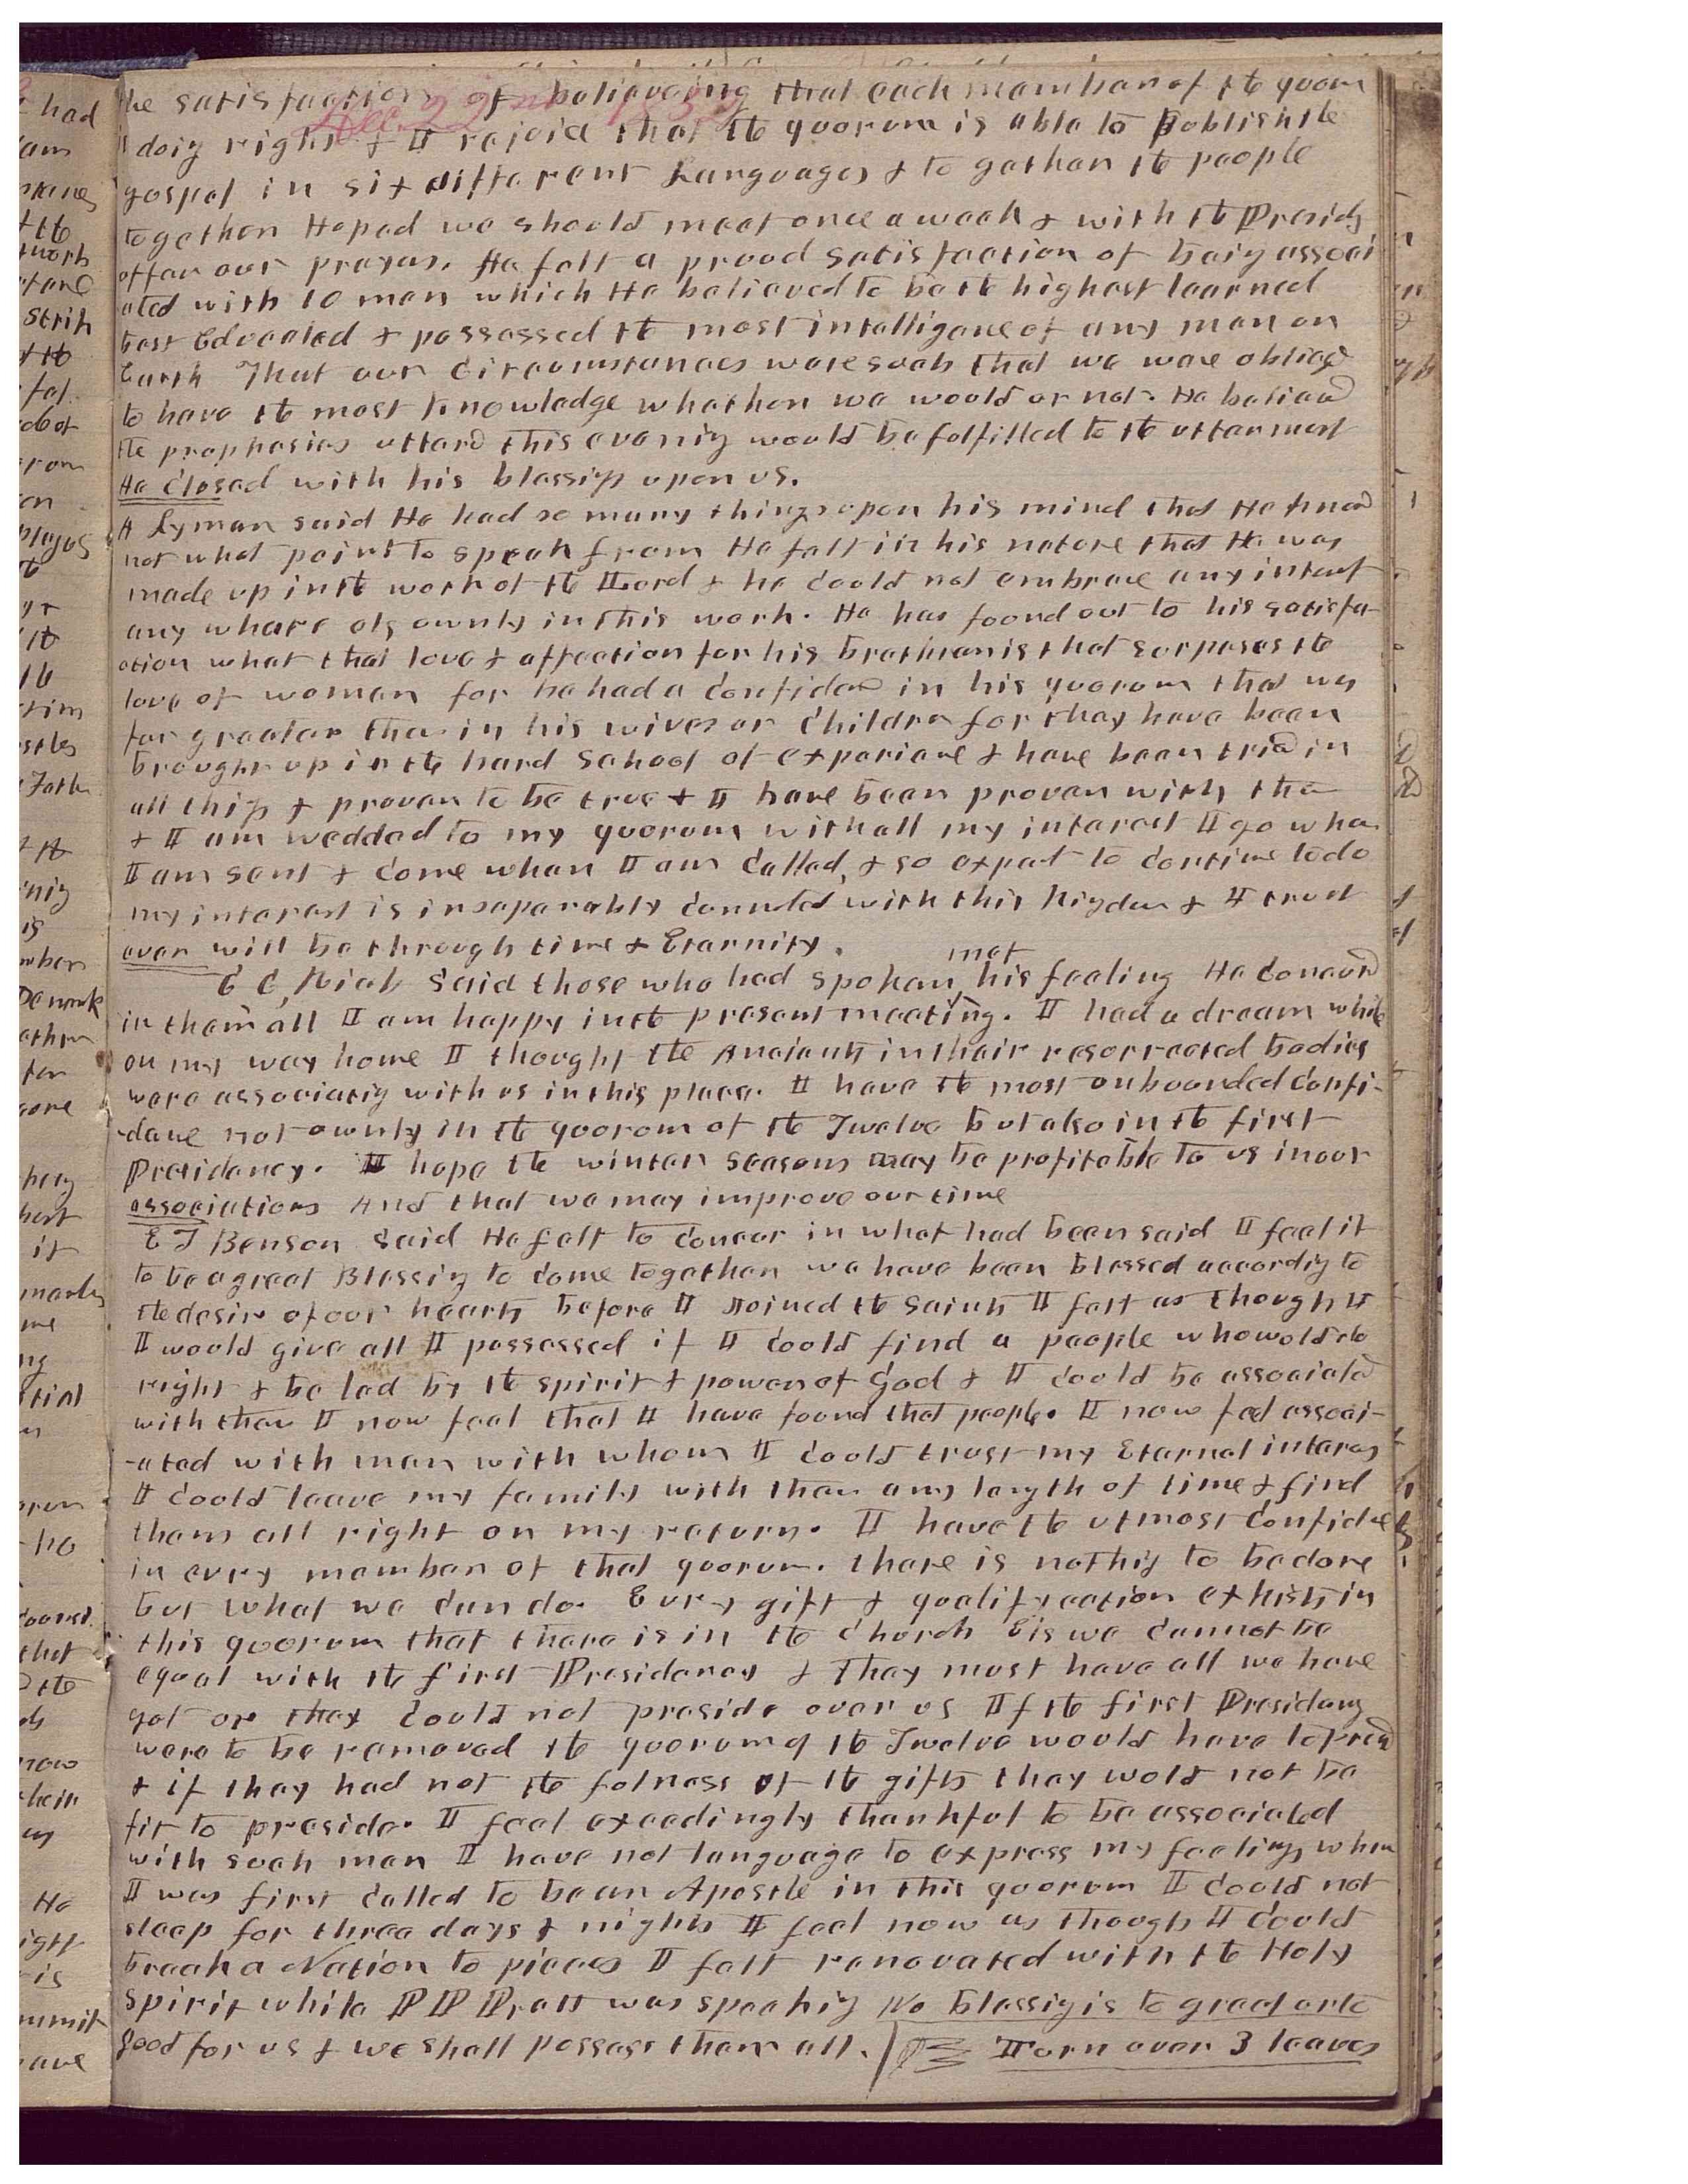 Dec. 22nd 1857
the satisfaction of believeing that each member of the quorum
is doing right & I rejoice that the quorum is able to Publish the
gospel in six different Languages & to gather the people
together Hoped we should meet once a week & with the Presidy
offer our prayers. He felt a proud satisfaction of being associ
ated with 10 men which He believed to be the highest learned
best Educated & possessed the most intelligence of any men on
Earth That our Circumstances were such that we were obliged
to have the most knowledge whether we would or not. He believed
the prophesies utterd this evening would be fulfilled to the uttermost
He Closed with his blessings upon us.
A Lyman said He had so many things upon his mind that He knew
not what point to speak from He felt in his nature that He was
made up in the work of the Lord & he Could not embrace any interest
any where els ownly in this work. He has found out to his satisfa
ction what that love & affection for his Brethren is that surpases the
love of woman for he had a Confidence in his quorum that was
far greater than in his wives or Children for they have been
brought up in the hard School of experiance & have been tried in
all things & proven to be true & I have been proven with them
& I am wedded to my quorum with all my interest I go when
I am sent & Come when I am Called, & so expect to Continue to do
my interest is inseparably Connected with this Kingdom & I trust
ever will be through time & Eternity.
E C, Rich Said those who had spoken met his feeling He Concured
in them all I am happy in the present meeting. I had a dream while
on my way home I thought the Ancients in their resurrected bodies
were associating with us in this place. I have the most unbounded Confi-
-dence not ownly in the quorum of the Twelve but also in the first
Presidency. I hope the winter seasons may be profitable to us in our
associations And that we may improve our time
E T Benson Said He felt to Concur in what had been said I feel it
to be a great Blessing to Come together we have been blessed according to
the desire of our hearts before I Joined the Saints I felt as though
I would give all I possessed if I Could find a people who wold do
right & be led by the spirit & power of God & I Could be associated
with them I now feel that I have found that people. I now feel associ-
-ated with men with whom I Could trust my Eternal interes
I Could leave my family with them any length of time & find
them all right on my return. I have the utmost Confidence
in evry member of that quorum. there is nothing to be done
but what we Can do. Evry gift & qualifycation exhists in
this quorum that there is in the Church Eis we Cannot be
equal with the first Presidency & They must have all we have
got or they Could not preside over us If the first Presidency
were to be removed the quorum of the Twelve would have to presid
& if they had not the fulness of the gifts they wold not be
fit to preside. I feel exceedingly thankful to be associated
with such men I have not language to express my feelings when
I was first Called to be an Apostle in this quorum I Could not
sleep for three days & nights I feel now as though I Could
break a Nation to pieces I felt renovated with the Holy
Spirit while P P Pratt was speaking No blessing is to great or to
good for us & we shall possess them all. Turn over 3 leaves